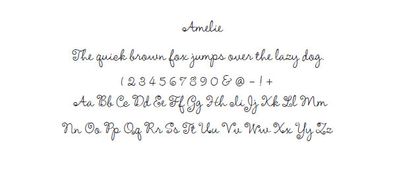 Amelie
The quick brown fox jumps over the lazy dog.
1 2 3 4 5 6 7 8 9 0 & @ - ! +
Aa Bb Cc Dd Ee Ff Gg Hh Ii Jj Kk Ll Mm
Nn Oo Pp Qq Rr Ss Tt Uu Vv Ww Xx Yy Zz